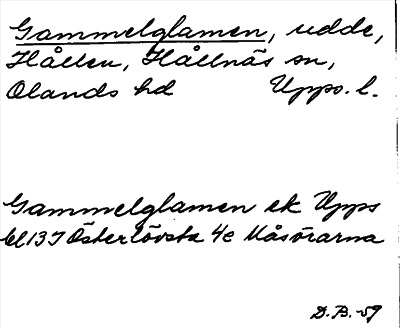 Gammelglamen, udde,
Hållen, Hållnäs sn,
Olands hd Upps. l.
Gammelglamen ek Upps
bl 13 I Österlövsta 4e Måsörarna
D. B. -59